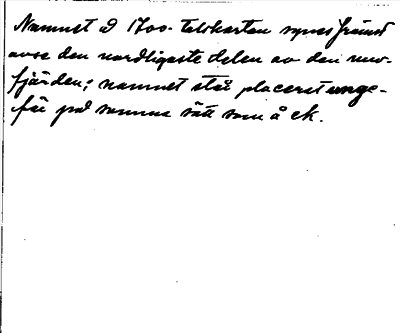 Namnet å 1700-talskartan synes främst
avse den nordligaste delen av den nuv.
fjärden; namnet står placerat unge-
fär på samma sätt som å ek.